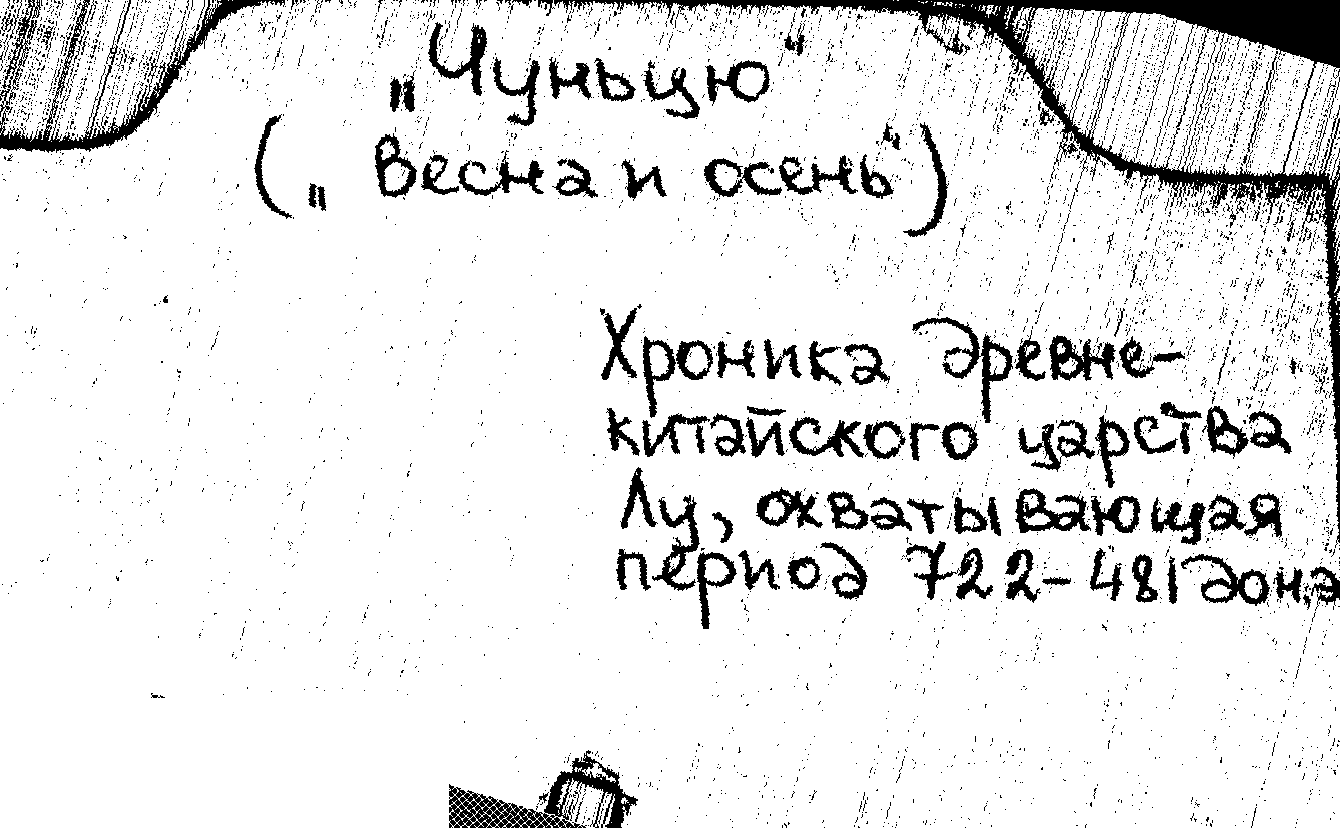 „Чуньцю“
(„Весна и осень“)
Хроника древне-
китайского царства
Лу, охватывающая
период 722-481 до н.э